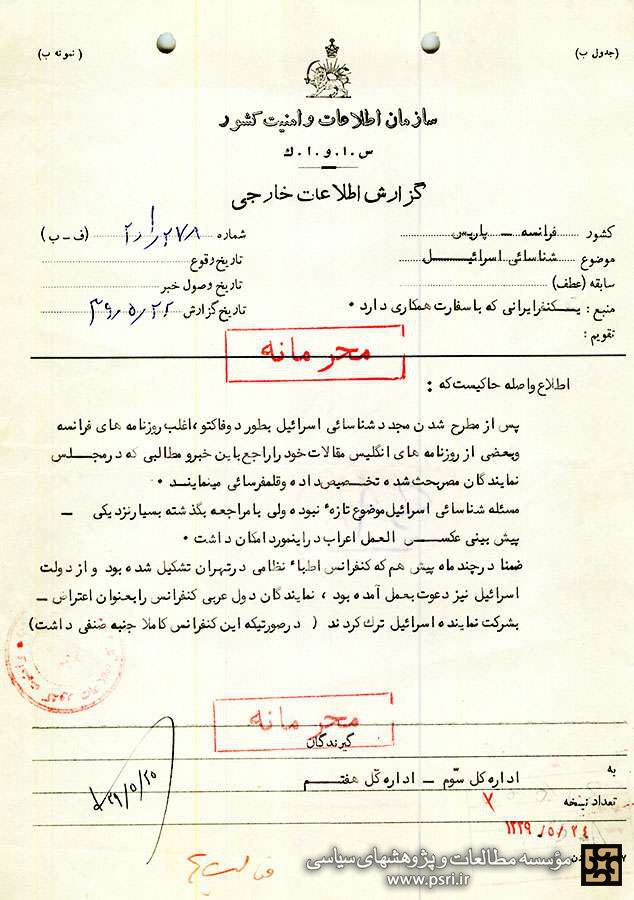 (جدول ب)
(نمونه ب)
سازمان اطلاعات و امنیت کشور
س.ا.و.ا.ك
گزارش اطلاعات خارجی
کشور فرانسه ــ پاریس
شماره (ف ــ ب)
موضوع شناسائی اسرائیــــل
تاریخ وقوع
سابقه (عطف)
تاریخ وصول خبر
منبع : یــکنفرایرانی که با سفارت همکاری دارد ۰
تاریخ گزارش
تقویم :
محرمانه
اطلاع واصله حاکیست که :
پس از مطرح شدن مجدد شناسائی اسرائیل بطور دوفاکتو، اغلب روزنامه های فرانسه
وبعضی از روزنامه های انگلیس مقالات خود را راجع باین خبر و مطالبی که در مجلس
نمایندگان مصر بحث شده تخــصیص داده و قلمفرسائی مینمایند ۰
مسئله شناسائی اسرائیل موضوع تازهٔ نبوده ولی با مراجعه بگذشته بسیار نزدیکی ــ
پیش بینی عکســـس العمل اعراب در اینمورد امکان داشت ۰
ضمنا در چند ماه پیش هم که کنفرانس اطباء نظامی در تهران تشکیل شده بود و از دولت
اسرائیل نیز دعوت بعمل آمده بود ، نمایندگان دول عربی کنفرانس را بعنوان اعتراض ــ
بشرکت نماینده اسرائیل ترك کردند ( در صورتیکه این کنفرانس کاملا جنبه صنفی داشت)
محرمانه
گیرندگان
به اداره کل سوّم ــ اداره کل هفتــم
تعداد نسخه ۲
۱۳۳۹/۵/۲٤
مؤسسه مطالعات و پژوهشهای سیاسی
www.psri.ir